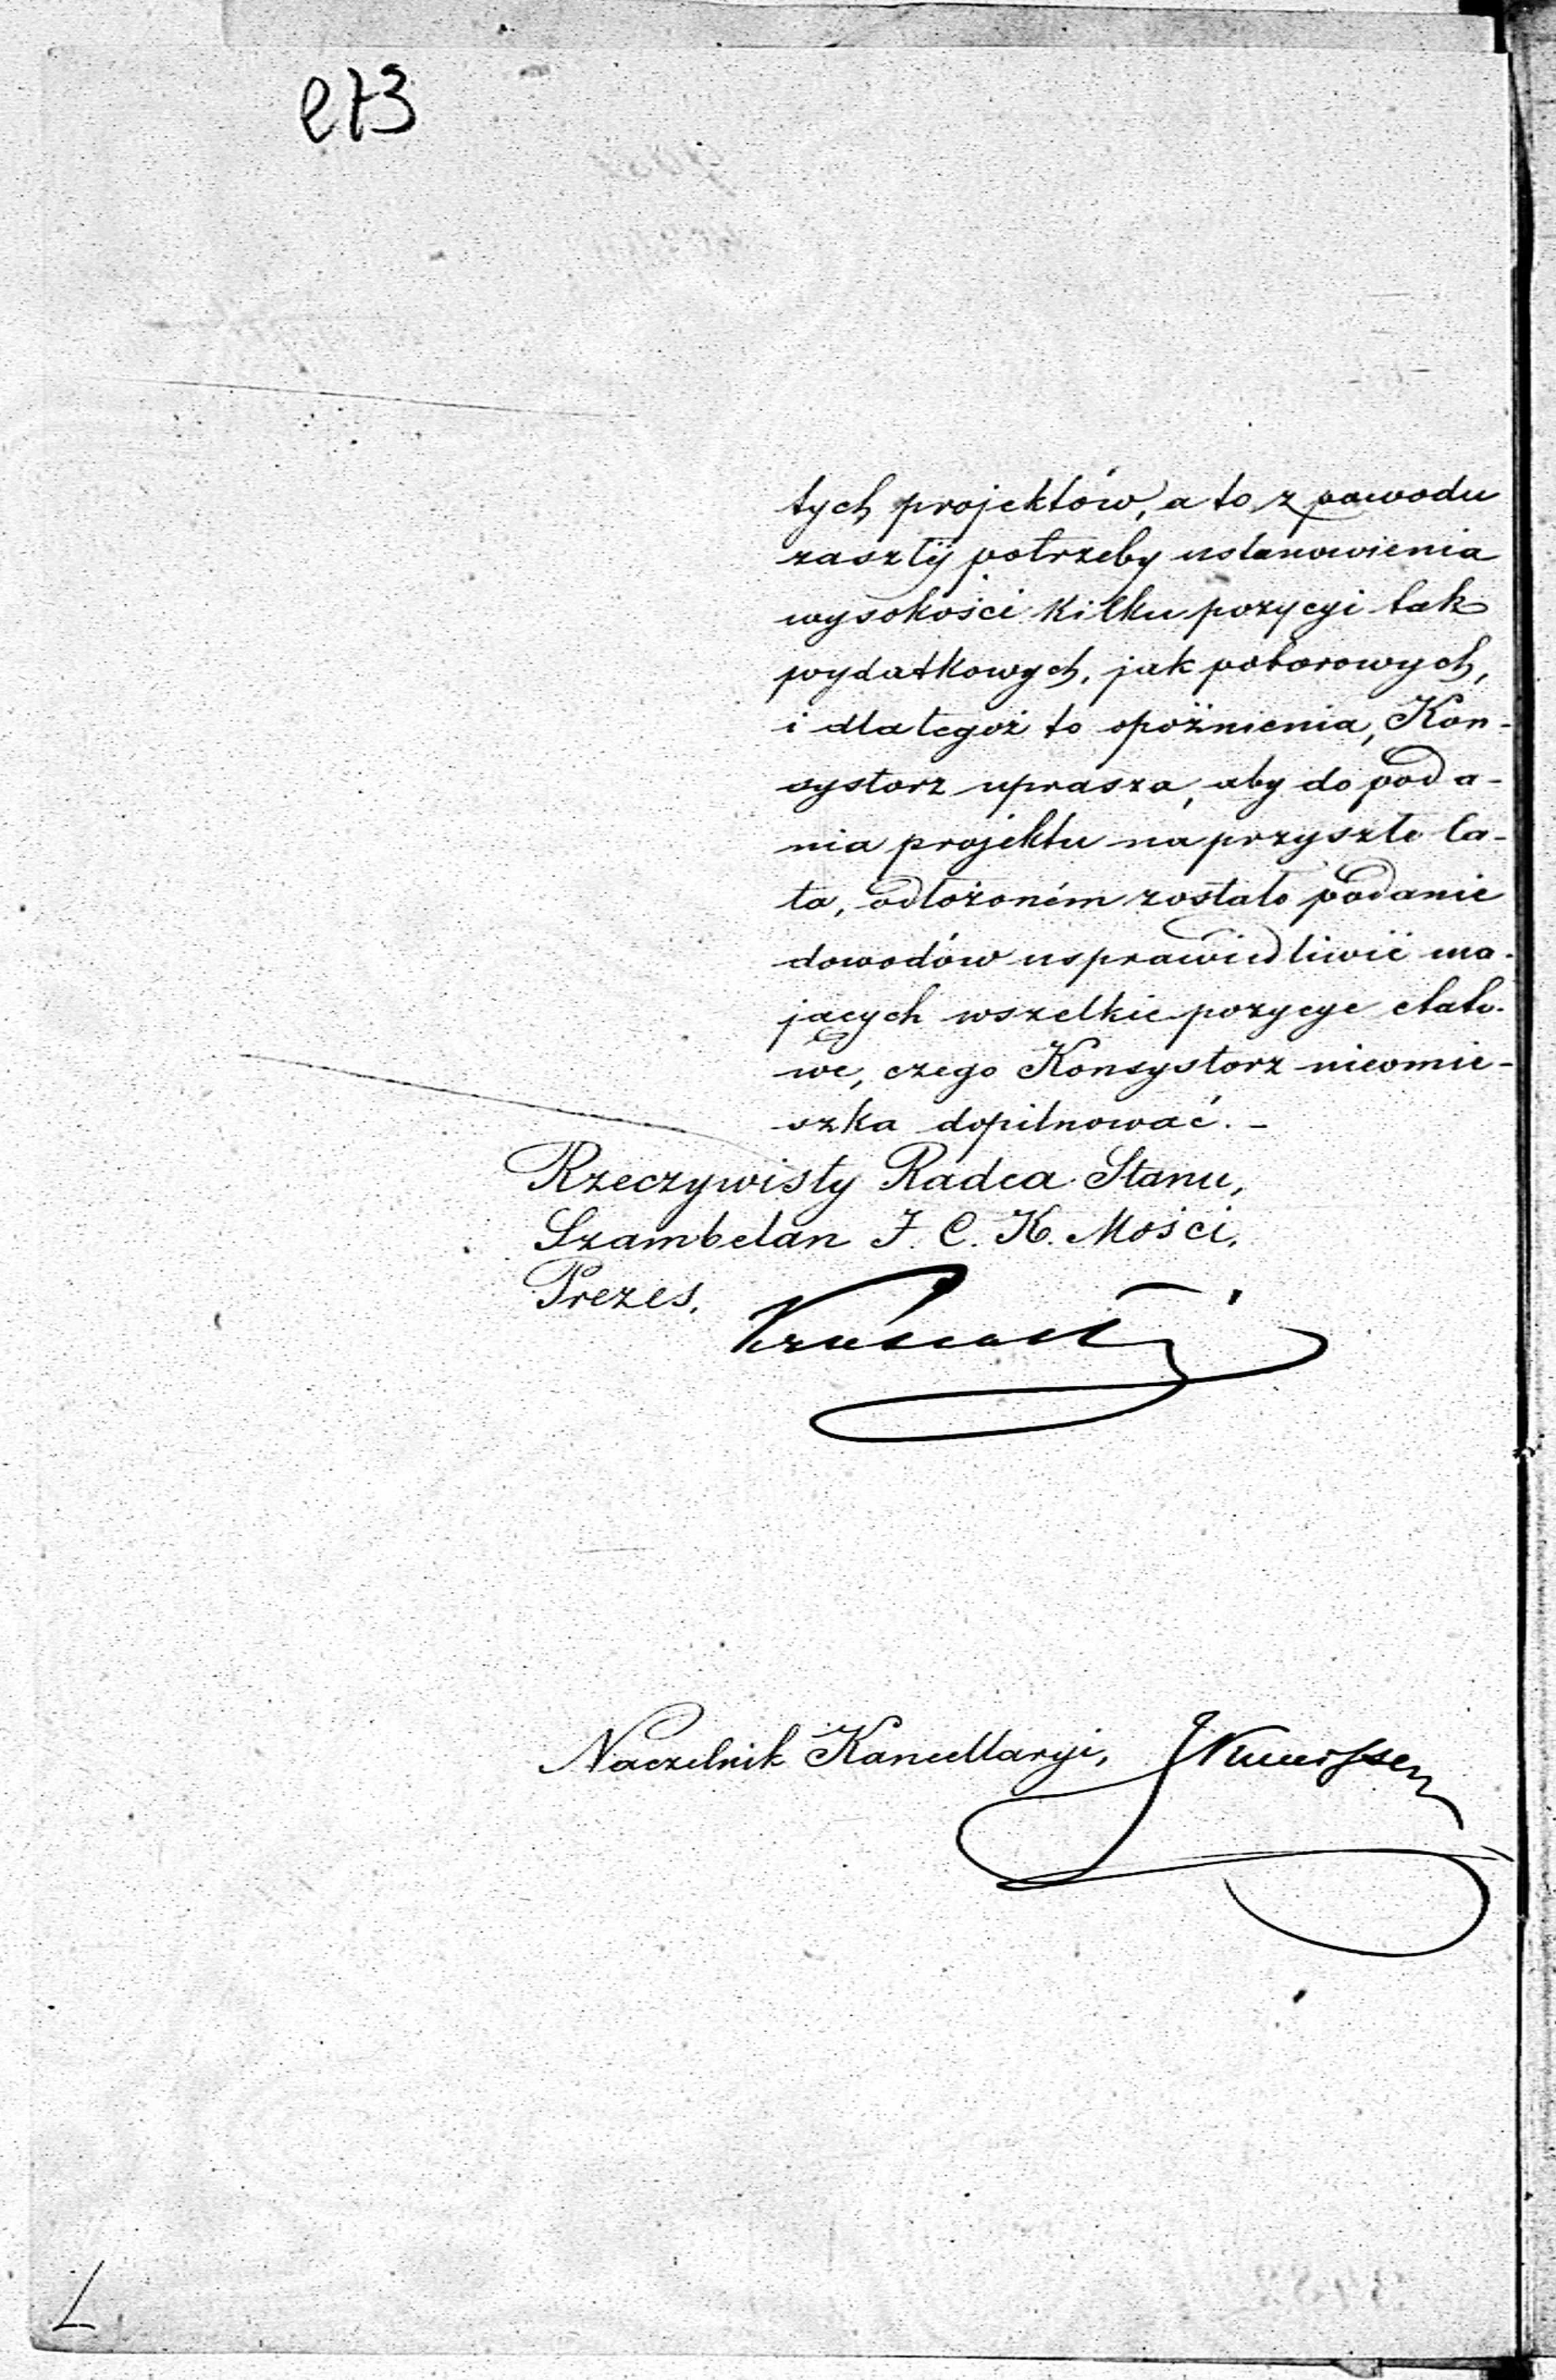 tych projektów, a to z powodu
zaszłij potrzeby ustanowienia
wysokości kilku pozycyi tak
wydatkowych, jak poborowych,
i dla tegoż to opóźnienia, Kon-
systorz uprasza, aby do poda-
nia projektu na przyszłe la-
ta, odłożoném zostało podanie
dowodów usprawiedliwić ma-
jących wszelkie pozycye etato-
we, czego Konsystorz nieomie-
szka dopilnować. -
Rzeczywisty Radca Stanu,
Szambelan J. C. K. Mości,
Prezes,
Naczelnik Kancellaryi,
L